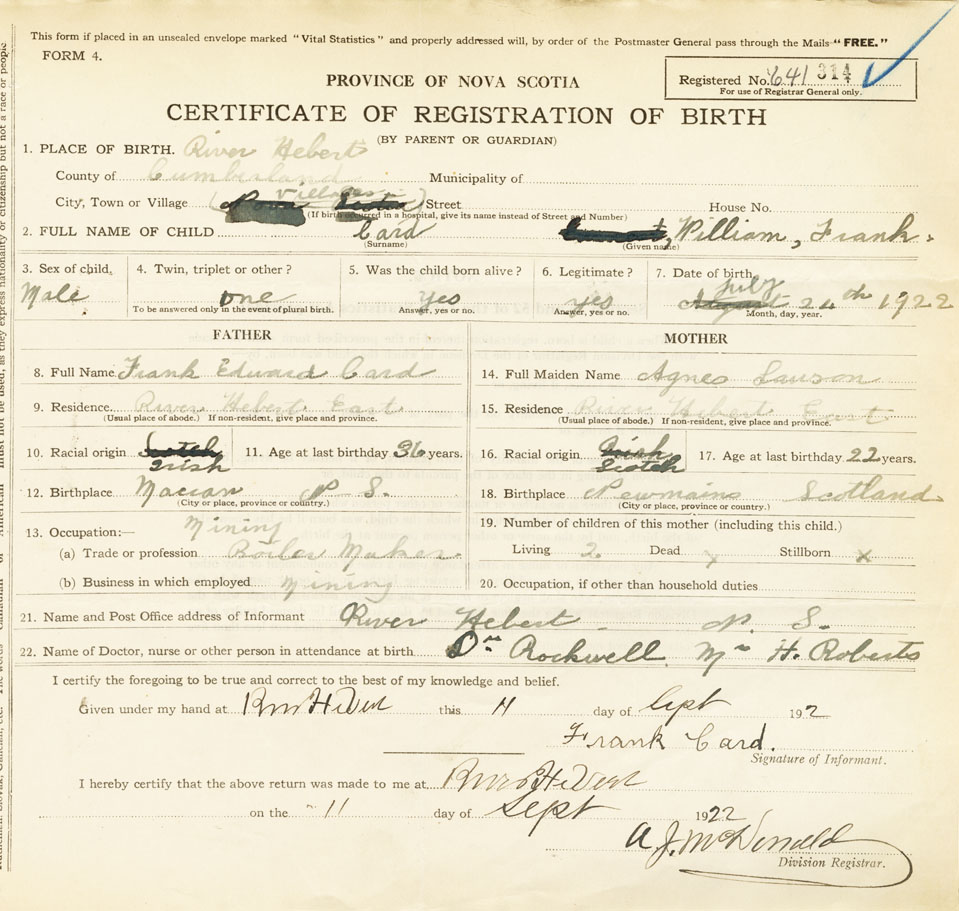 This form if placed in an unsealed envelope marked "Vital Statistics" and properly addressed will, by order of the Postmaster General pass through the Mails "FREE."
FORM 4.
PROVINCE OF NOVA SCOTIA
Registered No. 641 314
For use of Registrar General only.
CERTIFICATE OF REGISTRATION OF BIRTH
(BY PARENT OR GUARDIAN)
1. PLACE OF BIRTH. River Hebert
County of Cumberland Municipality of
City, Town or Village (Village) Street House No.
(If birth occurred in a hospital, give its name instead of Street and Number)
2. FULL NAME OF CHILD Card William, Frank.
(Surname) (Given name)
3. Sex of child. 4. Twin, triplet or other? 5. Was the child born alive? 6. Legitimate? 7. Date of birth.
Male one yes yes July 24th 1922
To be answered only in the event of plural birth. Answer, yes or no. Answer, yes or no. Month, day, year.
FATHER MOTHER
8. Full Name Frank Edward Card
9. Residence River Hebert East
(Usual place of abode.) If non-resident, give place and province.
10. Racial origin Scotch Irish 11. Age at last birthday 36 years.
12. Birthplace Maccan N. S.
(City or place, province or country.)
13. Occupation:— Mining
(a) Trade or profession Boiler Maker
(b) Business in which employed Mining
14. Full Maiden Name Agnes Lawson
15. Residence River Hebert East
(Usual place of abode.) If non-resident, give place and province.
16. Racial origin Irish Scotch 17. Age at last birthday 22 years.
18. Birthplace Newmains Scotland
(City or place, province or country.)
19. Number of children of this mother (including this child.)
Living 2. Dead x Stillborn x
20. Occupation, if other than household duties
21. Name and Post Office address of Informant River Hebert N. S.
22. Name of Doctor, nurse or other person in attendance at birth Dr. Rockwell Mrs H. Roberts
I certify the foregoing to be true and correct to the best of my knowledge and belief.
Given under my hand at River Hebert this 11 day of Sept 192
Frank Card.
Signature of Informant.
I hereby certify that the above return was made to me at River Hebert
on the 11 day of Sept 1922
A. J. McDonald
Division Registrar.